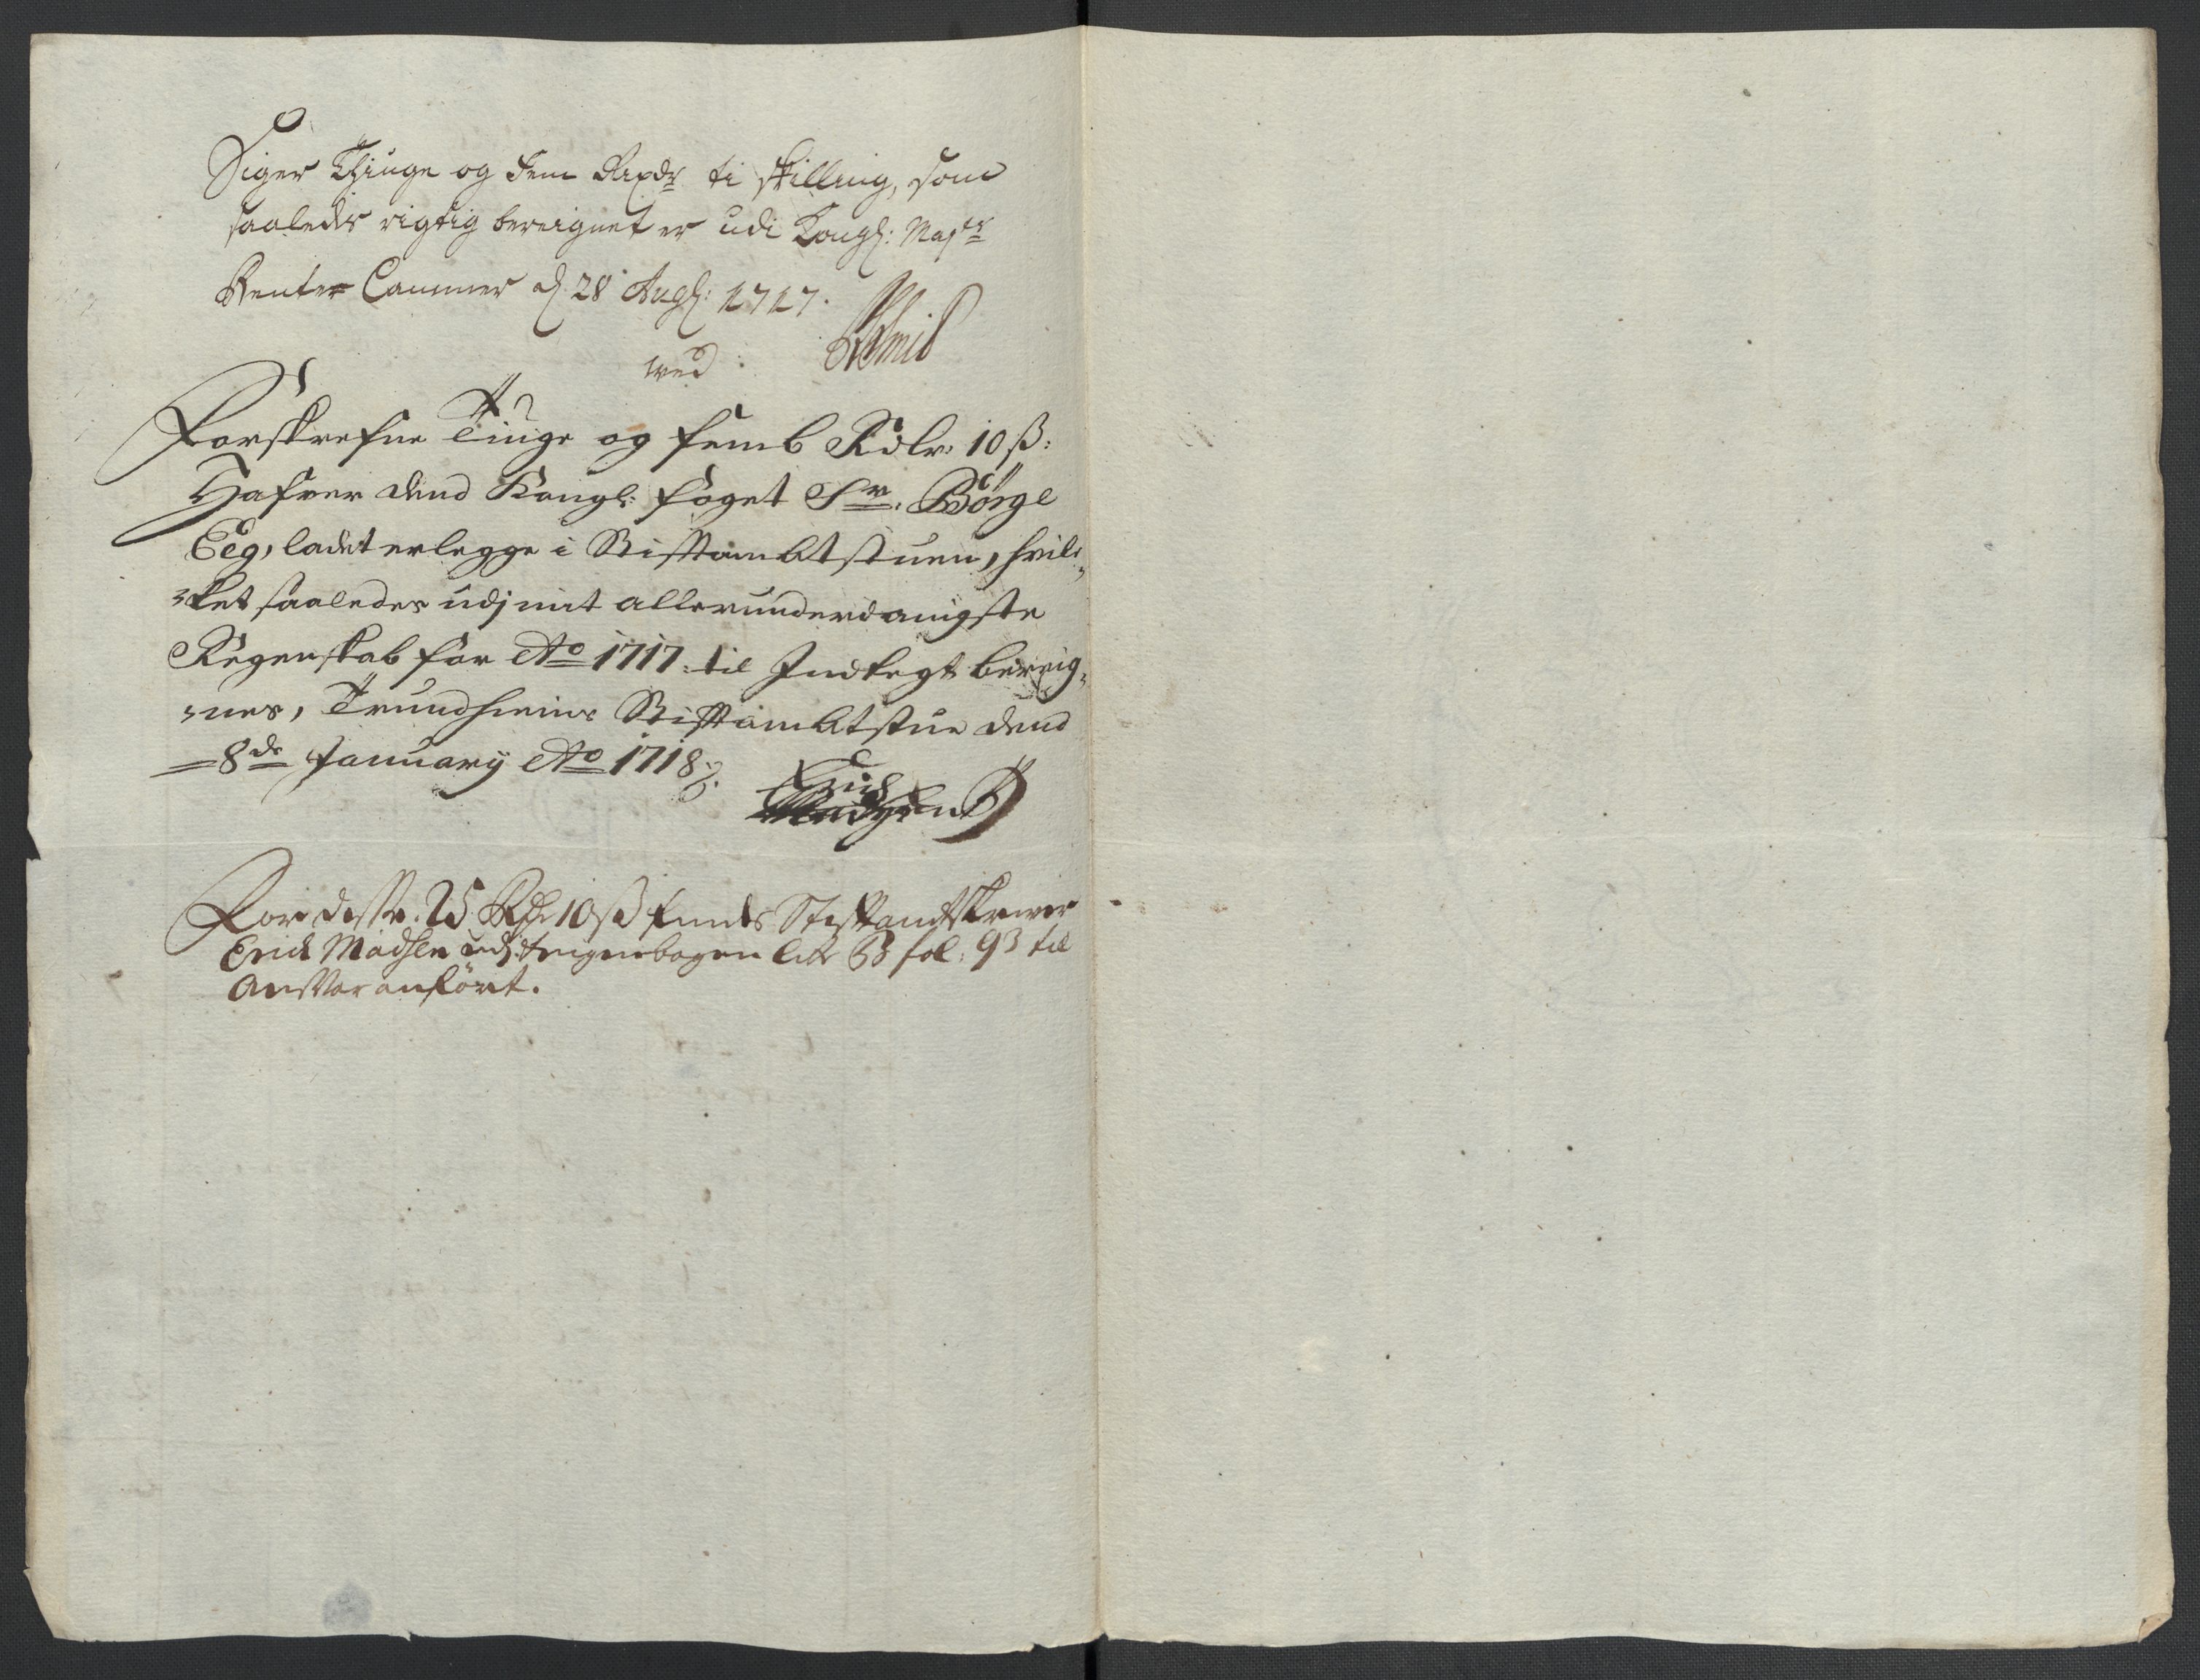 Siger Thiuge og fem Rixdr ti skilling, som
saaledis rigtig bereignet er udi Kongl: Majts
Rente Cammer d. 28 Augl: 1717.
ved:
Forskrefne Tiuge og femb Rdlr. 10 ß:
Hafver dend Kongl: foget Sr. Börge
Eeg, ladet erlegge i Stiftambtstuen, hvil-
-ket saaledes udj mit allerunderdanigste
Regenskab for Ao 1717. til Indtegt bereig-
-nes, Trundhiems Stiftambtstue dend
8de January Ao 1718
Erich
Madsen
For diste. 25 Rdr 10 ß findes Stiftamtskrivr
Erick Madsen udj Reignebogen litr B fol: 93 til
Ansvar anfört.